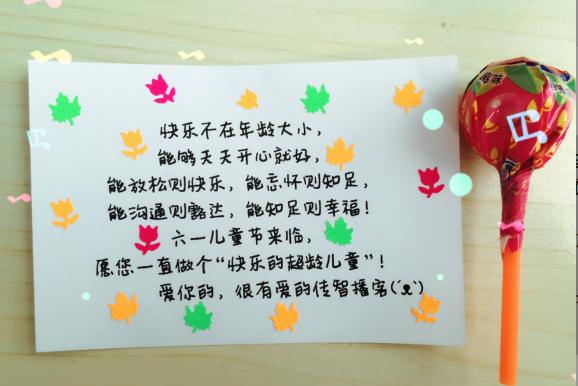 快乐不在年龄大小，
能够天天开心就好，
能放松则快乐，能忘怀则知足，
能沟通则豁达，能知足则幸福！
六一儿童节来临，
愿您一直做个“快乐的超龄儿童”！
爱你的，很有爱的传智播客(´ᴥ`)
莓味